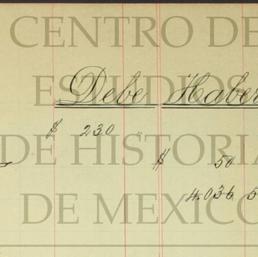 CENTRO DE
ESTUDIOS
Debe Haber
$ 230
DE HISTORIA
$ 50
4.036 5
DE MEXICO